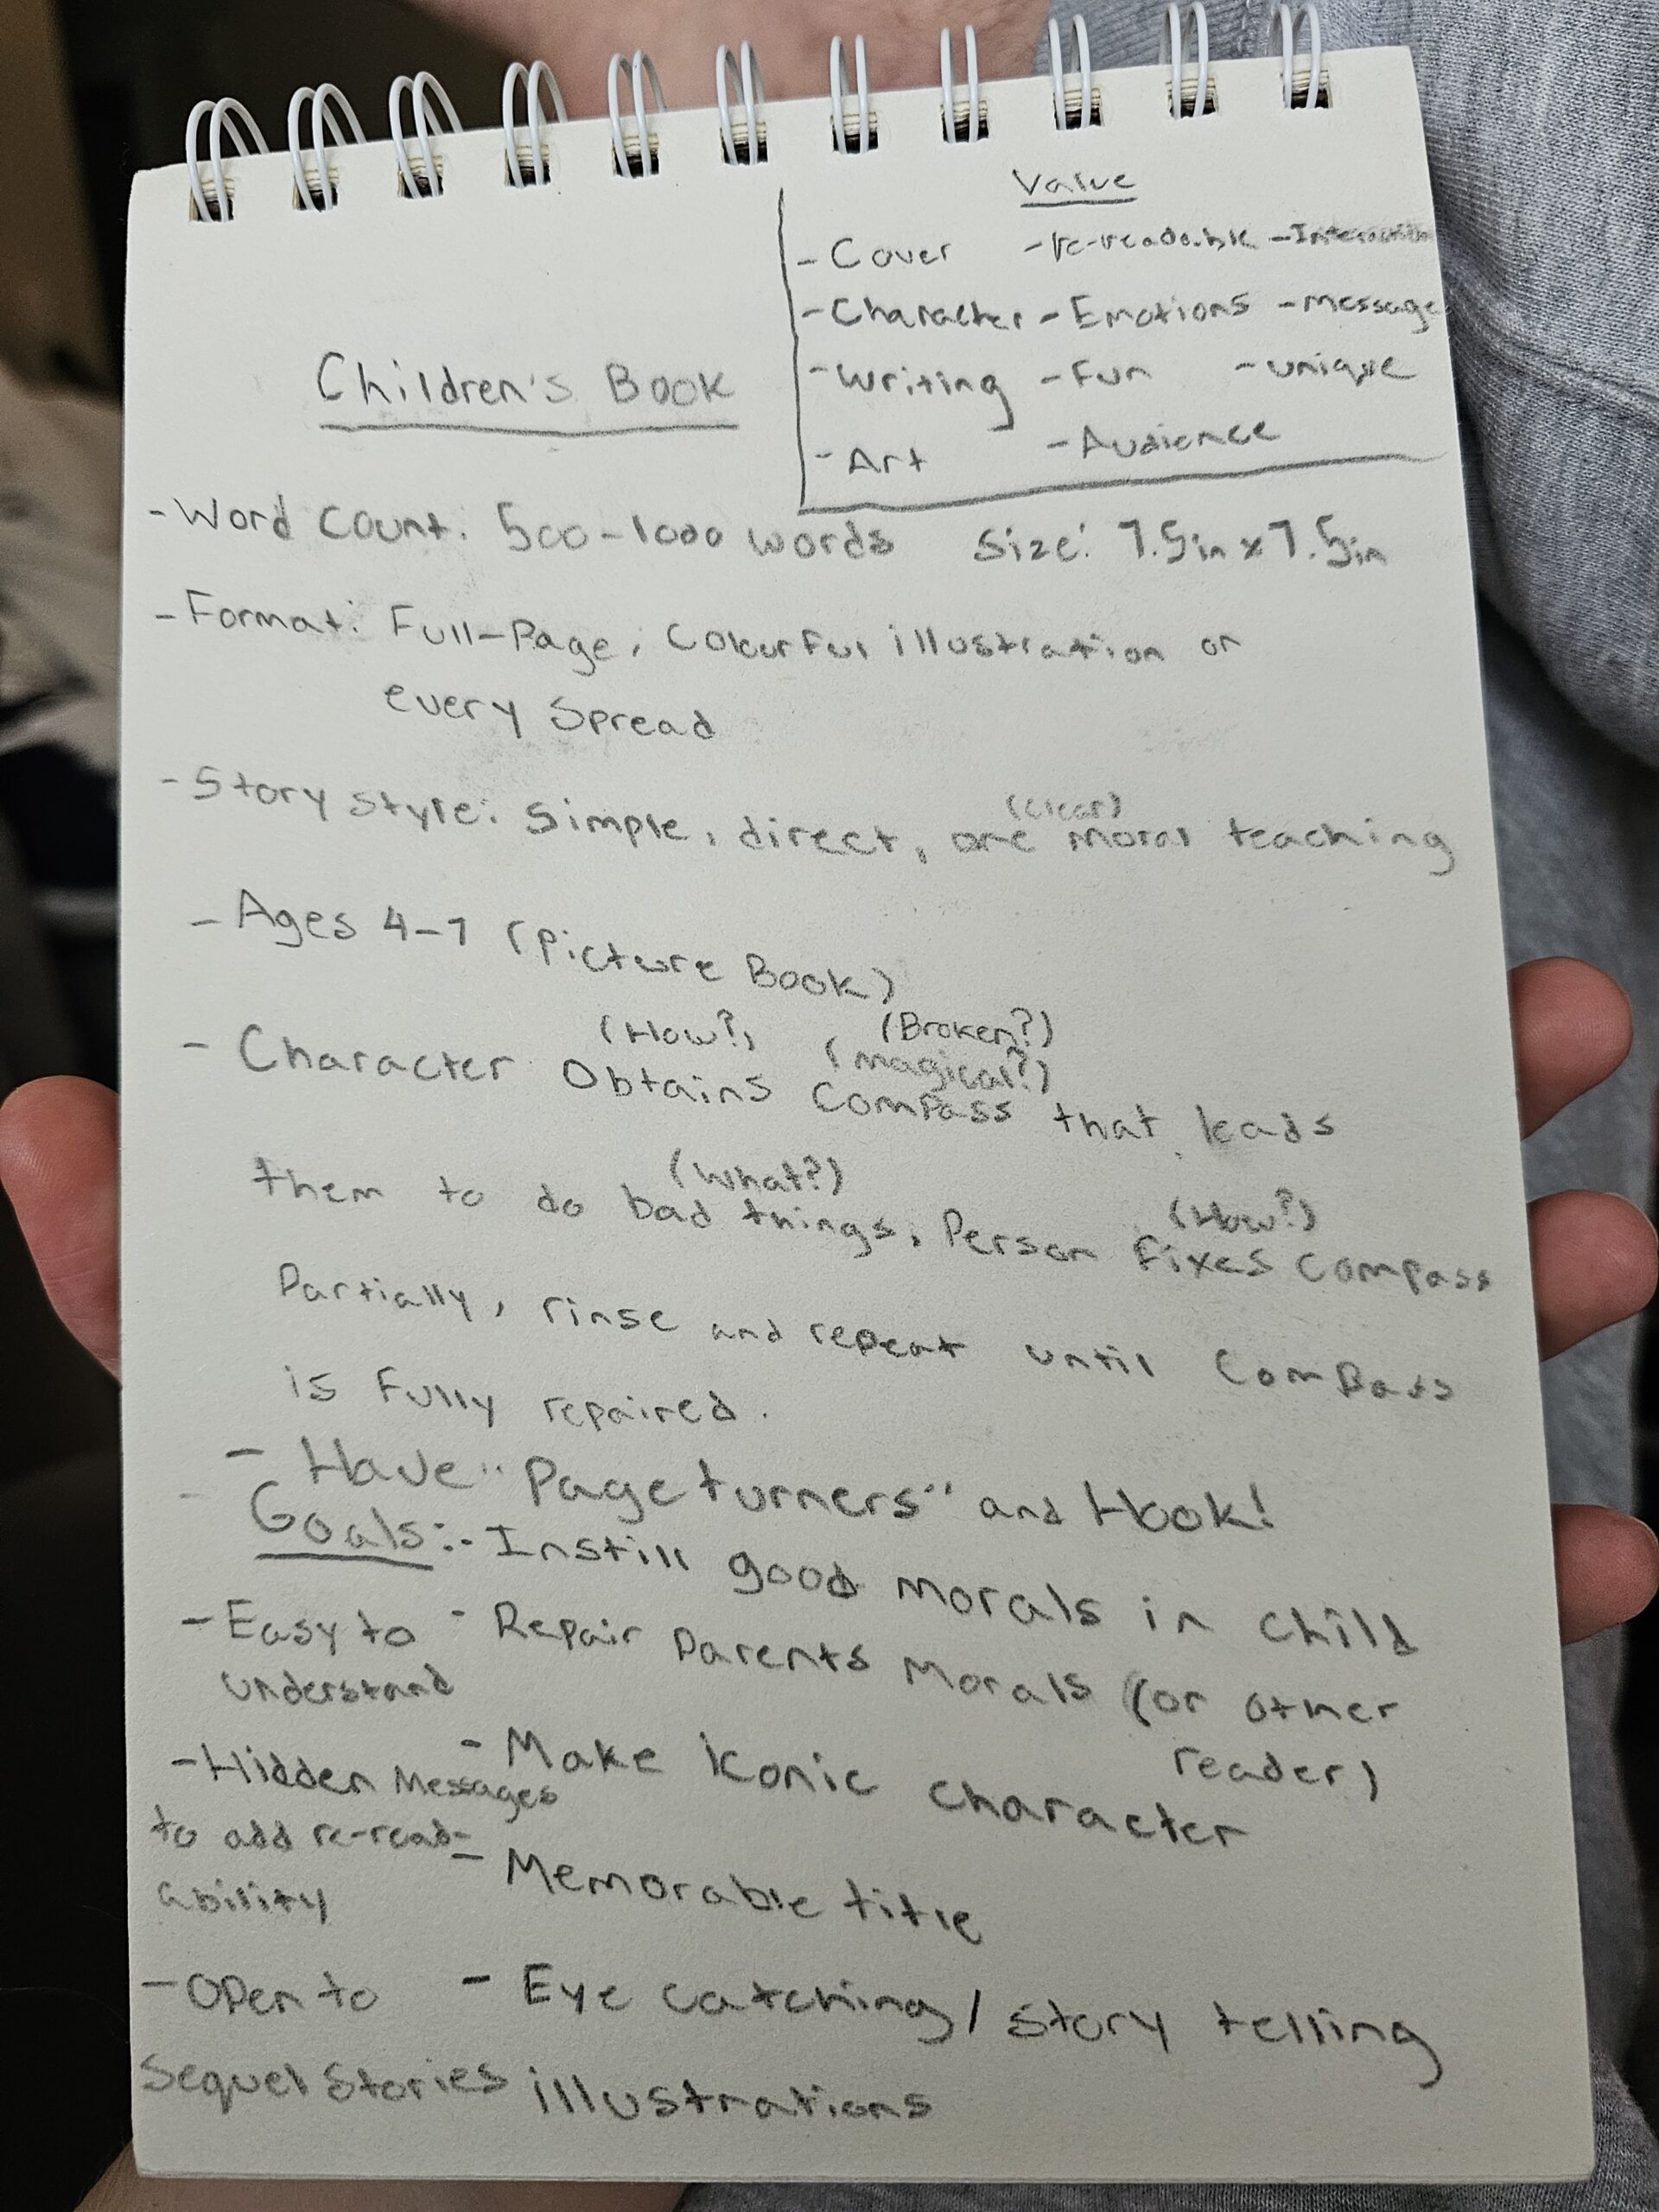 Value
- Cover - re-readable - Interactive
- Character - Emotions - Message
- Writing - Fun - unique
- Art - Audience
Children's Book
- Word Count: 500-1000 words Size: 7.5in x 7.5in
- Format: Full-Page, Colourful illustration on
every Spread
- Story style: Simple, direct, one (clear) moral teaching
- Ages 4-7 (Picture Book)
(How?) (Broken?)
(magical?)
- Character Obtains Compass that leads
(What?)
them to do bad things, Person (How?) fixes Compass
Partially, rinse and repeat until Compass
is Fully repaired.
- Have "Page turners" and Hook!
- Goals: - Instill good morals in child
- Easy to understand
- Repair Parents Morals (or other reader)
- Hidden Messages to add re-read-ability
- Make Iconic character
- Memorable title
- Open to Sequel Stories
- Eye catching/story telling illustrations